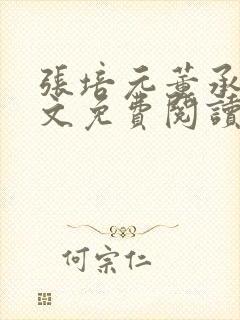 張培元董承
文免費閱讀
何宗仁